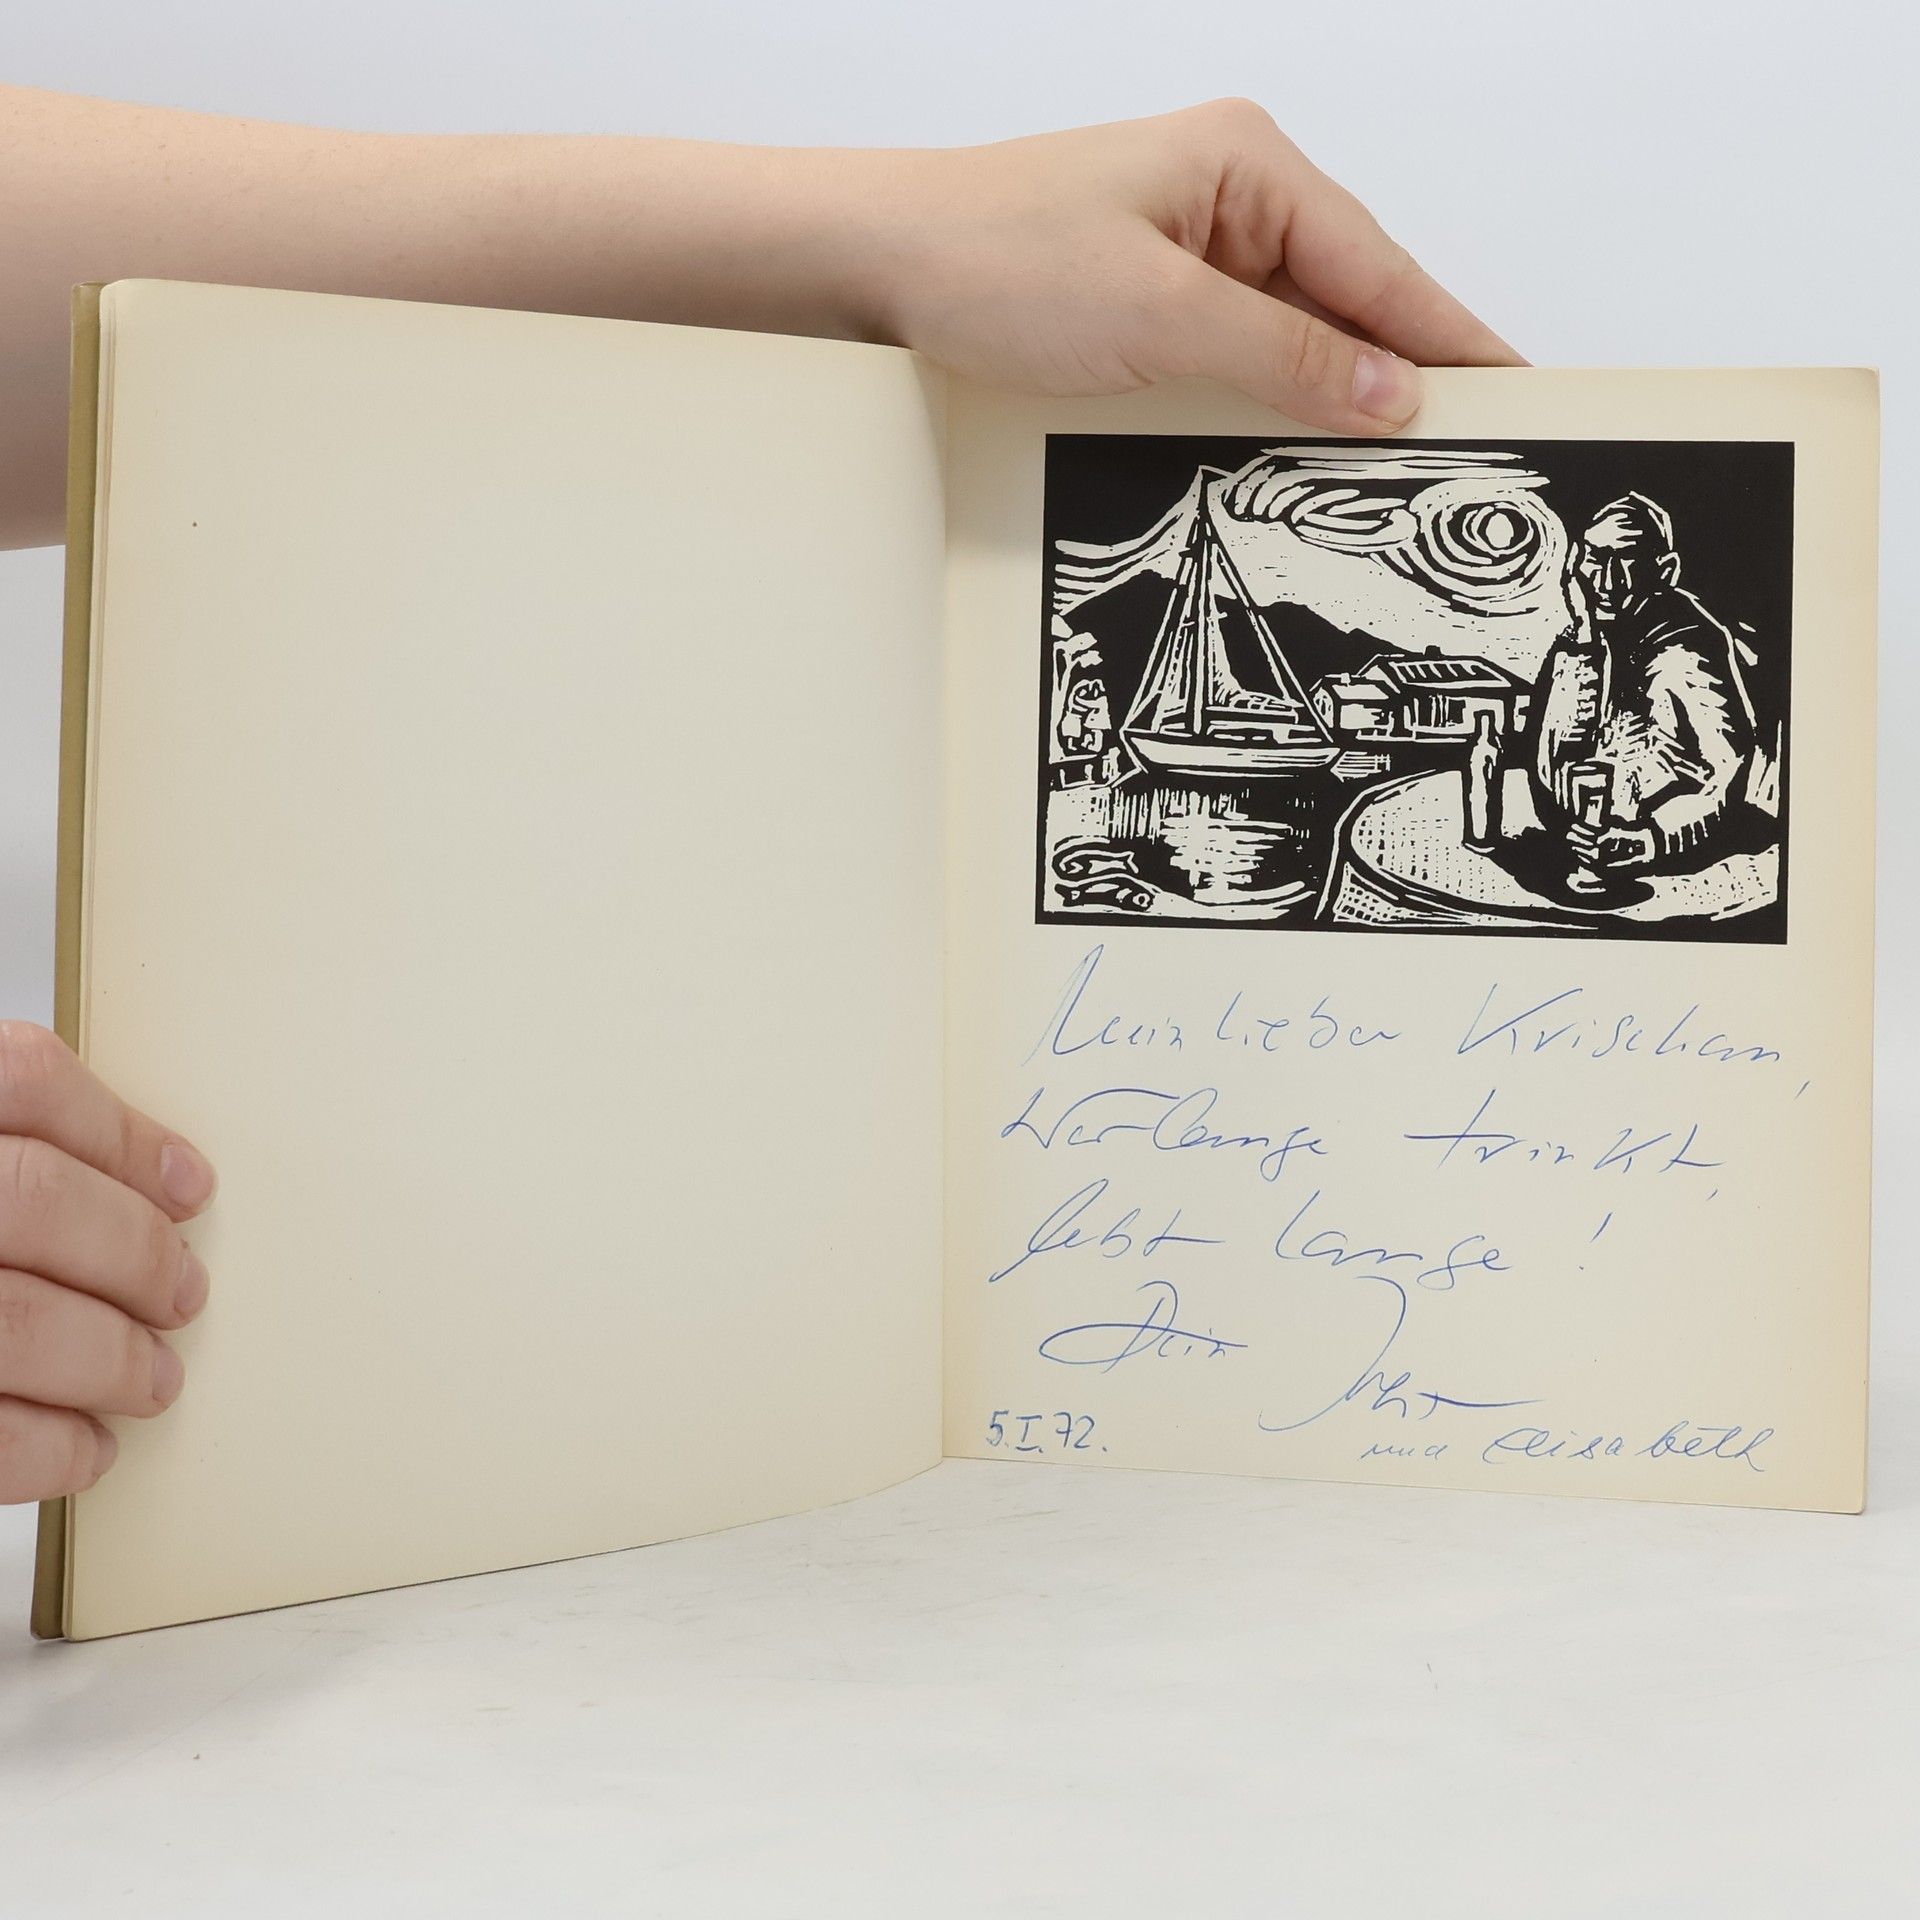 Mein lieber Krischan,
Wer lange trinkt,
lebt lange!
Dein
5.I.72.
und Elisabeth